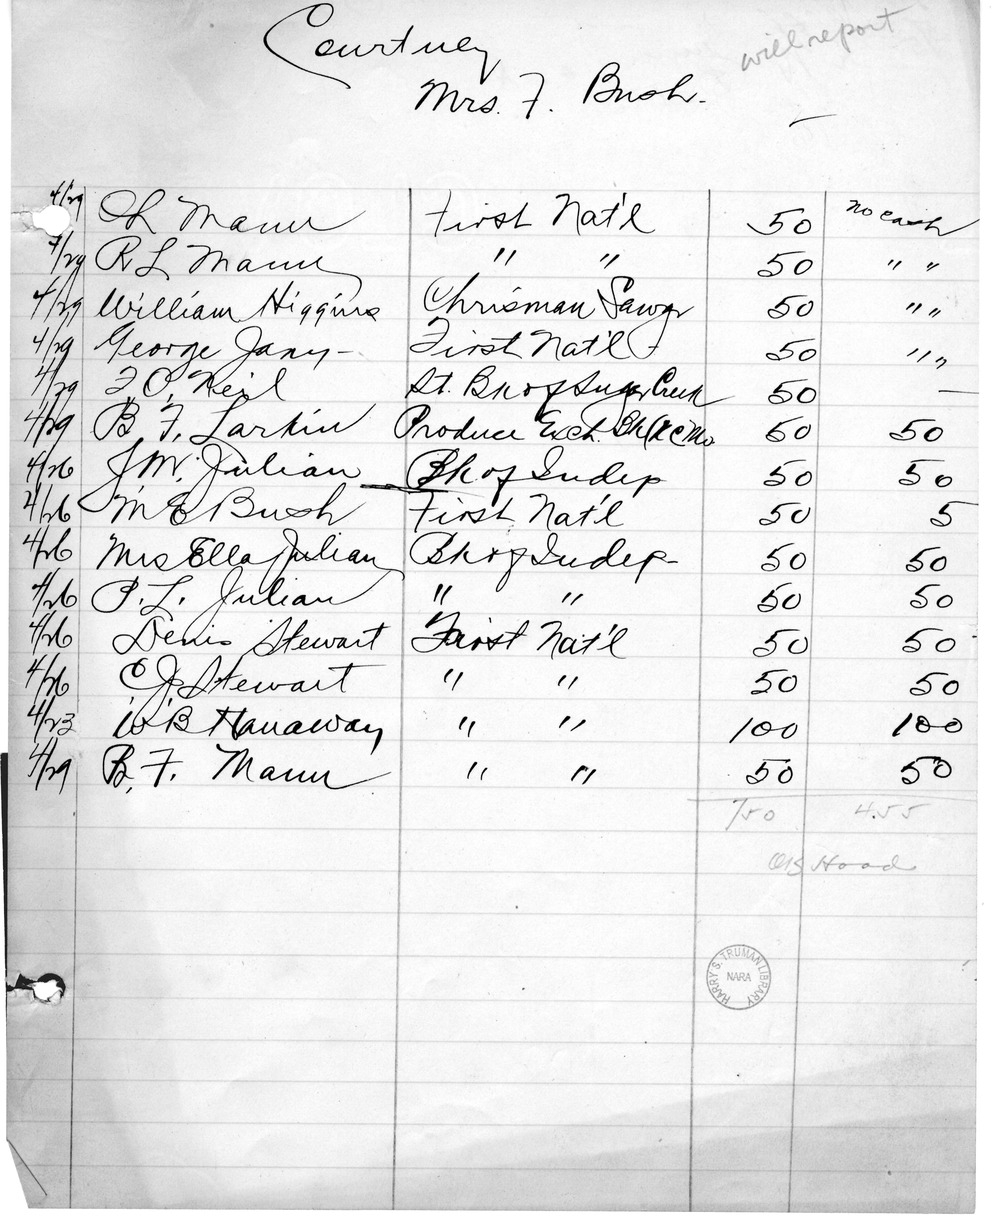 Courtney
will report
Mrs. F. Bush.
4/29 Mann First Nat'l 50 no cash
4/29 R L Mann " " 50 " "
4/29 William Higgins Chrisman Sawyr 50 " "
4/29 George Jany - First Nat'l 50 " "
4/29 Neil St. Bk of Sugar Creek 50 —
4/29 B. F. Larkin Produce Exch. Bk K C Mo 50 50
4/26 J. W. Julian Bk of Indep 50 50
4/26 M E Bush First Nat'l 50 5
4/26 Mrs Ella Julian Bk of Indep - 50 50
4/26 P. L. Julian " " 50 50
4/26 Denis Stewart First Nat'l 50 50
4/26 C J. Stewart " " 50 50
4/23 W B Hanaway " " 100 100
4/29 B. F. Mann " " 50 50
750 4.55
HARRY S. TRUMAN LIBRARY
NARA